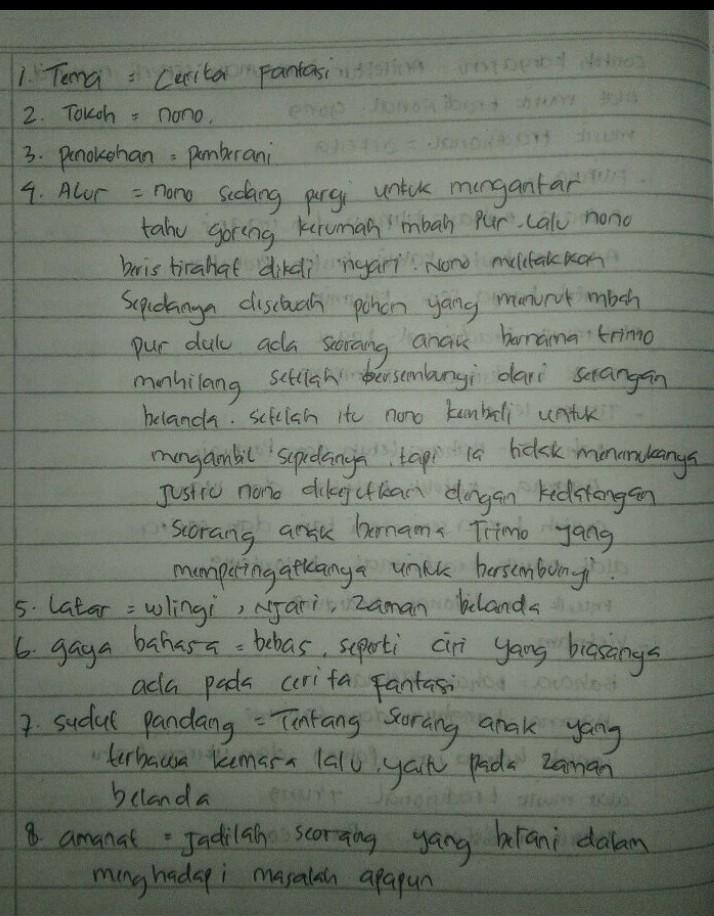 1. Tema = Cerita Fantasi
2. Tokoh = nono.
3. penokohan = pemberani
4. Alur = nono sedang pergi untuk mengantar
tahu goreng kerumah mbah Pur. Lalu nono
beristirahat dikali njari. Nono meletakkan
Sepedanya disebuah pohon yang menurut mbah
pur dulu ada seorang anak bernama trimo
menhilang setelah bersembunyi dari serangan
belanda. setelah itu nono kembali untuk
mengambil sepedanya, tapi ia tidak menemukanya
justru nono dikejutkan dengan kedatangan
seorang anak bernama Trimo yang
memperingatkanya untuk bersembunyi.
5. Latar = wlingi, Njari, Zaman belanda
6. gaya bahasa = bebas, seperti ciri yang biasanya
ada pada cerita fantasi
7. sudut pandang = Tentang seorang anak yang
terbawa kemasa lalu, yaitu pada zaman
belanda
8. amanat = Jadilah seorang yang berani dalam
menghadapi masalah apapun